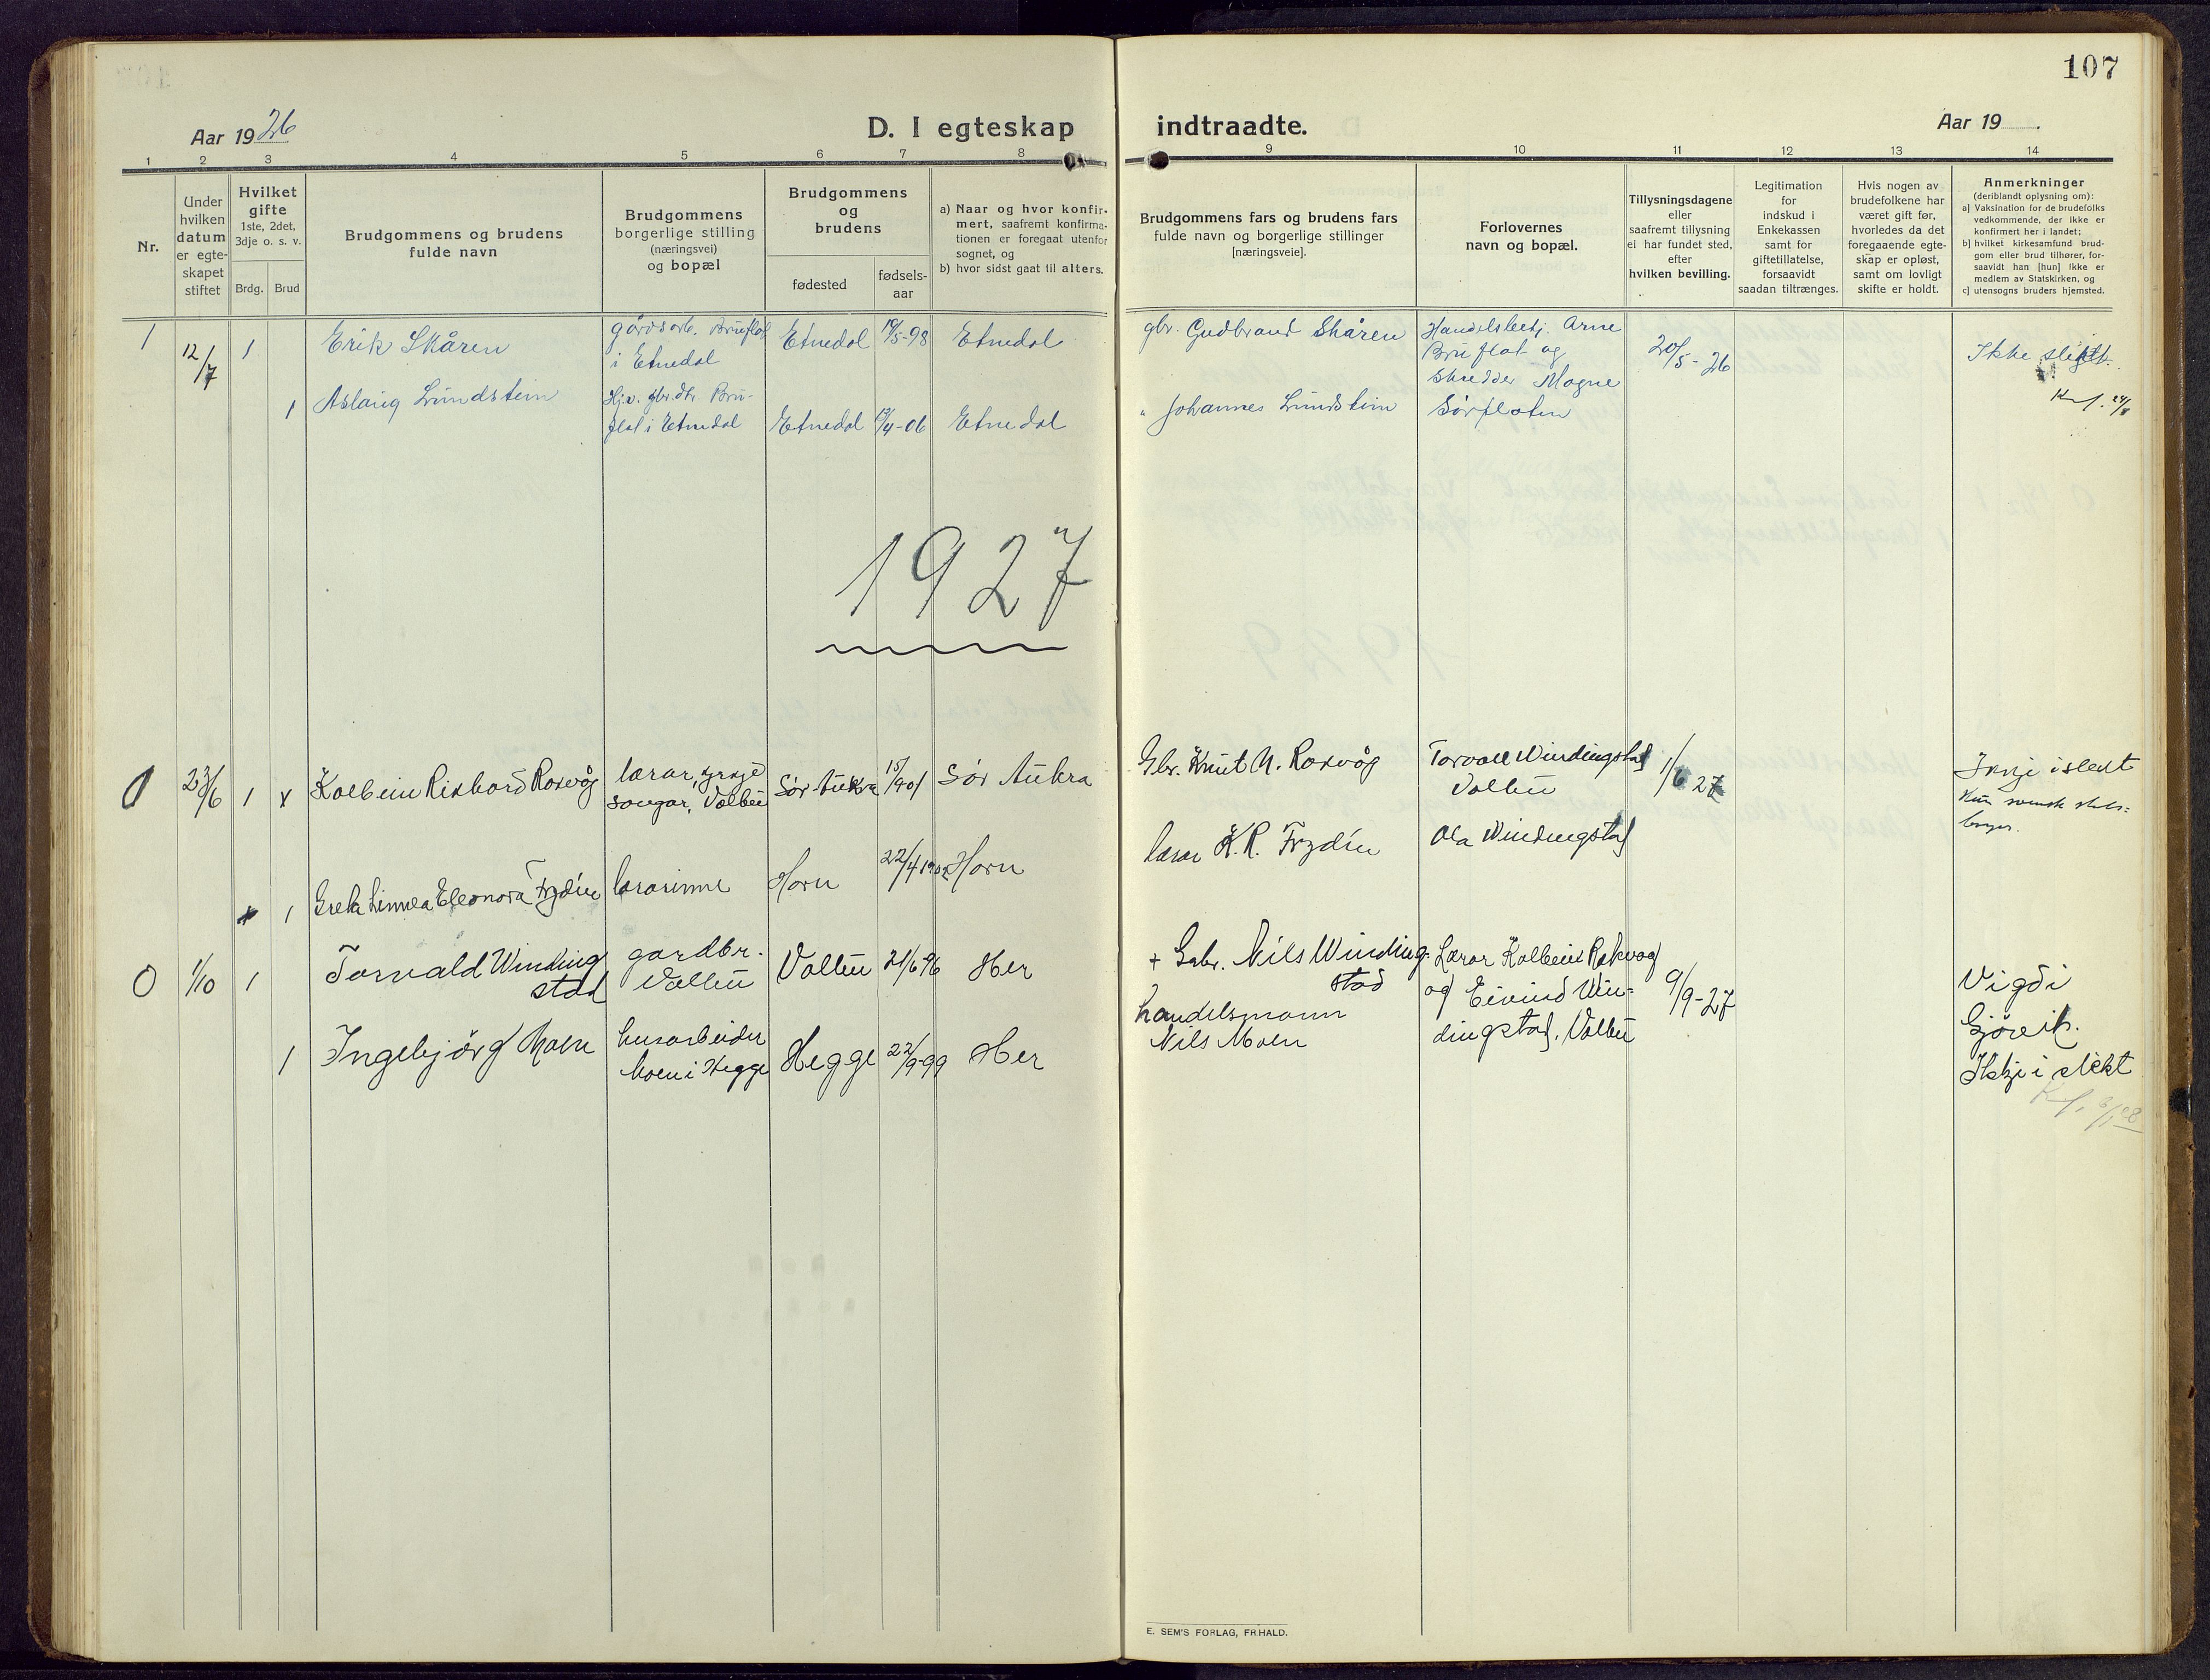 107
Aar 1926
D. I egteskap indtraadte.
Aar 19 .
1 2 3 4 5 6 7 8 9 10 11 12 13 14
Nr.
Under hvilken datum er egte-skapet stiftet
Hvilket gifte
1ste, 2det, 3dje o. s. v.
Brdg. Brud
Brudgommens og brudens
fulde navn
Brudgommens
borgerlige stilling
(næringsvei)
og bopæl
Brudgommens
og
brudens
fødested
fødsels-
aar
a) Naar og hvor konfir-
mert, saafremt konfirma-
tionen er foregaat utenfor
sognet, og
b) hvor sidst gaat til alters.
Brudgommens fars og brudens fars
fulde navn og borgerlige stillinger
[næringsveie].
Forlovernes
navn og bopæl.
Tillysningsdagene
eller
saafremt tillysning
ei har fundet sted,
efter
hvilken bevilling.
Legitimation
for
indskud i
Enkekassen
samt for
giftetillatelse,
forsaavidt
saadan tiltrænges.
Hvis nogen av
brudefolkene har
været gift før,
hvorledes da det
foregaaende egte-
skap er opløst,
samt om lovligt
skifte er holdt.
Anmerkninger
(deriblandt oplysning om):
a] Vaksination for de brudefolks
vedkommende, der ikke er
konfirmert her i landet;
b] hvilket kirkesamfund brud-
gom eller brud tilhører, for-
saavidt han [hun] ikke er
medlem av Statskirken, og
c] utensogns bruders hjemsted.
1 12/7 1 Erik Skåren gårdsarb. Bruflat
i Etnedal Etnedal 19/5-98 Etnedal gbr. Gudbrand Skåren Handelsbetj. Arne
Bruflat og
skredder Magne
Sørflaten 20/5-26 Ikke slegt.
1 Aslaug Lundstein Hj.v. gbr.dtr. Bru-
flat i Etnedal Etnedal /4-06 Etnedal " Johannes Lundstein
1927
23/6 1 x Kolbein Rikhard Roxvåg lærar, kyrkje
songar, Volbu Sør Aukra 15/ 1901 Sør Aukra Gbr. Knut N. Roxvåg Torvald Windingstad
Volbu 1/6 27 Ikkje i slekt
x 1 Greta Linnea Eleonora Frydén lærarinne Horn 22/4 1902 Horn lærar K.R. Frydén Ola Windingstad
0 1/10 1 Torvald Winding
stad gardbr.
Volbu Volbu 21/6 96 Her + Gabr. Nils Winding-
stad Lærar Kolbein Rokvog
og Eivind Win-
dingstad, Volbu 9/9-27 Vigdi
Gjøvik.
Ikkje i slekt
1 Ingebjörg Moen husarbeider
Moen i Hegge Hegge 22/9-99 Her handelsmann
Nils Moen
E. SEM'S FORLAG, FR.HALD.